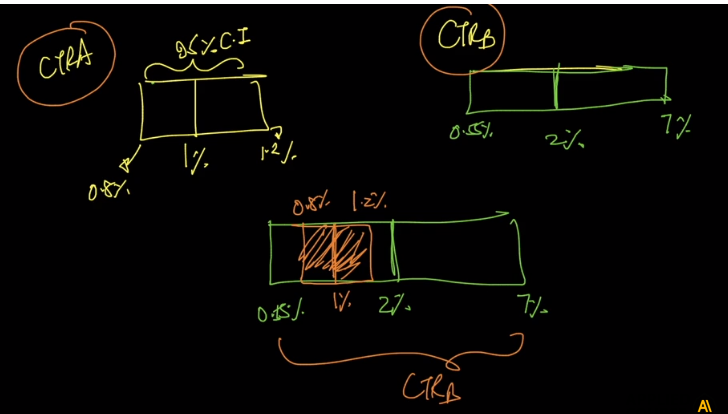 CTRA
95% C.I
0.8%
1%
1.2%
CTRB
0.55%
2%
7%
0.8% 1.2%
1% 2% 7%
CTRB